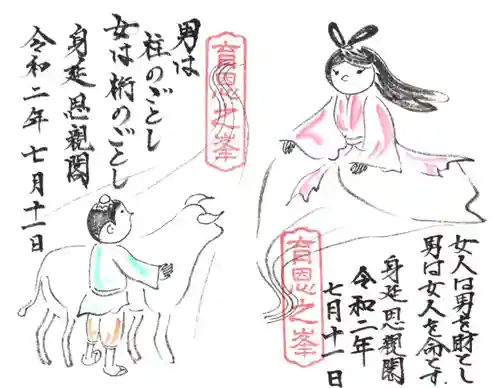 男は
柱のごとし
女は桁のごとし
身延思親閣
令和二年七月十一日
育恩之峯
女人は男を財とし
男は女人を命です
身延思親閣
令和二年
七月十一日
育恩之峯